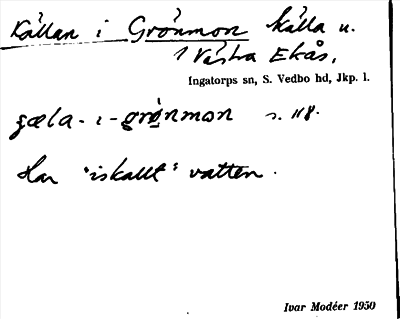 Källan i Grönmon källa u.
Västra Ekås.
Ingatorps sn, S. Vedbo hd, Jkp. l.
çæla-ı-grö̀nmon s. 118.
Har "iskallt" vatten.
Ivar Modéer 1950